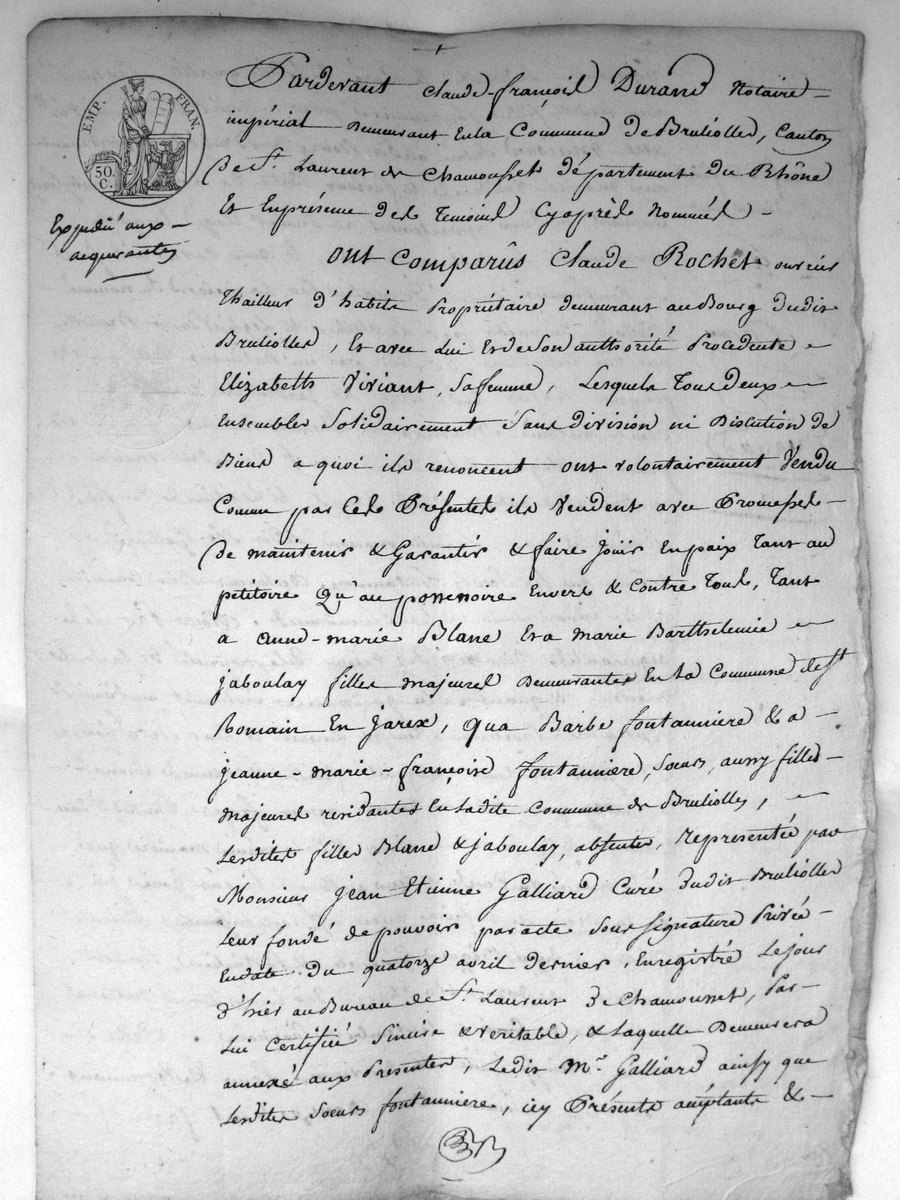 EMP. FRAN.
50. C.
Expédié aux
acquerantes
Pardevant Claude-françois Durand Notaire
impérial Demeurant En la Commune De Bruliolles, Canton
De St. Laurent de Chamousset Département Du Rhône
Et En présence des Temoins Cyaprès Nommés -
Ont Comparûs Claude Rochet ouvrier
Thailleur d'habits Propriétaire demeurant au Bourg dudit
Brulliolles, Et avec Lui Et de Son authorité Procedente
Elizabeth Viriant, Sa femme, Lesquels Tous deux
Ensembles Solidairement Sans division ni Discution de
Biens a quoi ils renoncent ont volontairement Vendu
Comme par Ces Présentes ils Vendent avec Promesses
De maintenir & Garantir & faire Joüir En paix Tant au
petitoire Qu'au possessoire Envers & Contre Tous, Tant
a Anne-marie Blanc Et a Marie Barthelemie
Jaboulay filles majeures Demeurantes En La Commune de St
Romain En Jarex, qu'a Barbe fontanniere & a
Jeanne-marie-françoise fontanniere, Sœurs, aussy filles
majeures residantes En Ladite Commune de Brulliolles,
Lesdites filles Blanc & Jaboulay, absentes, Representée par
Monsieur Jean Etienne Galliard Curé dudit Brulliolles
Leur fondé de pouvoir par acte Sous Signature Privée
En date Du quatorze avril Dernier, Enregistré Le jour
d'hier au Bureau de St. Laurent De Chamousset, Par
Lui Certifiée Sincere & veritable, & Laquelle Demeurera
annexé aux Presentes, Ledit Mr. Galliard ainsy que
Lesdites Sœurs fontanniere, icy Présents acceptants &